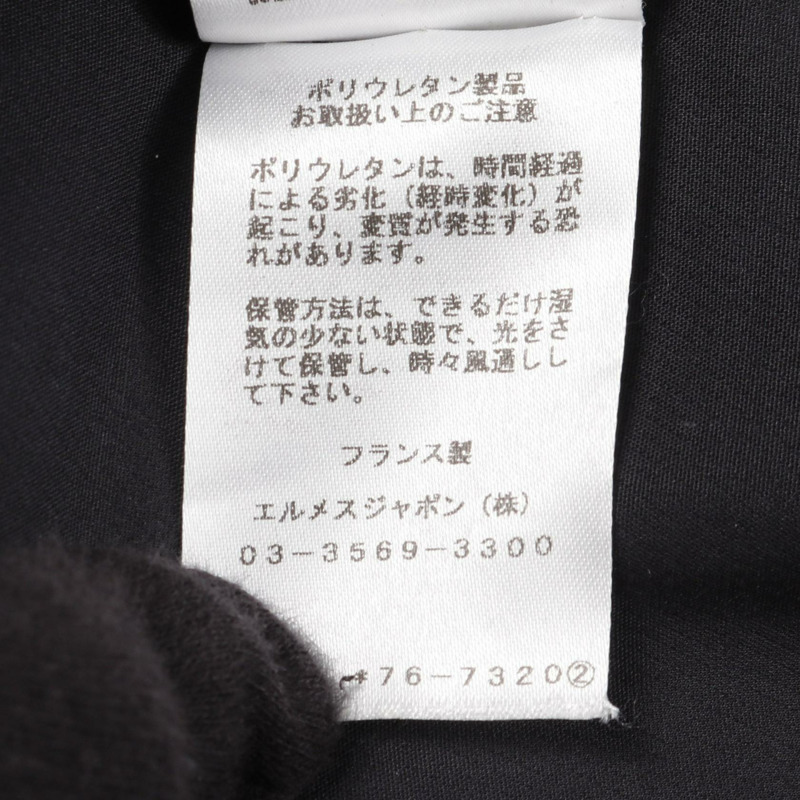 ポリウレタン製品
お取扱い上のご注意
ポリウレタンは、時間経過
による劣化（経時変化）が
起こり、変質が発生する恐
れがあります。
保管方法は、できるだけ湿
気の少ない状態で、光をさ
けて保管し、時々風通しし
て下さい。
フランス製
エルメスジャポン（株）
03-3569-3300
*76-7320②